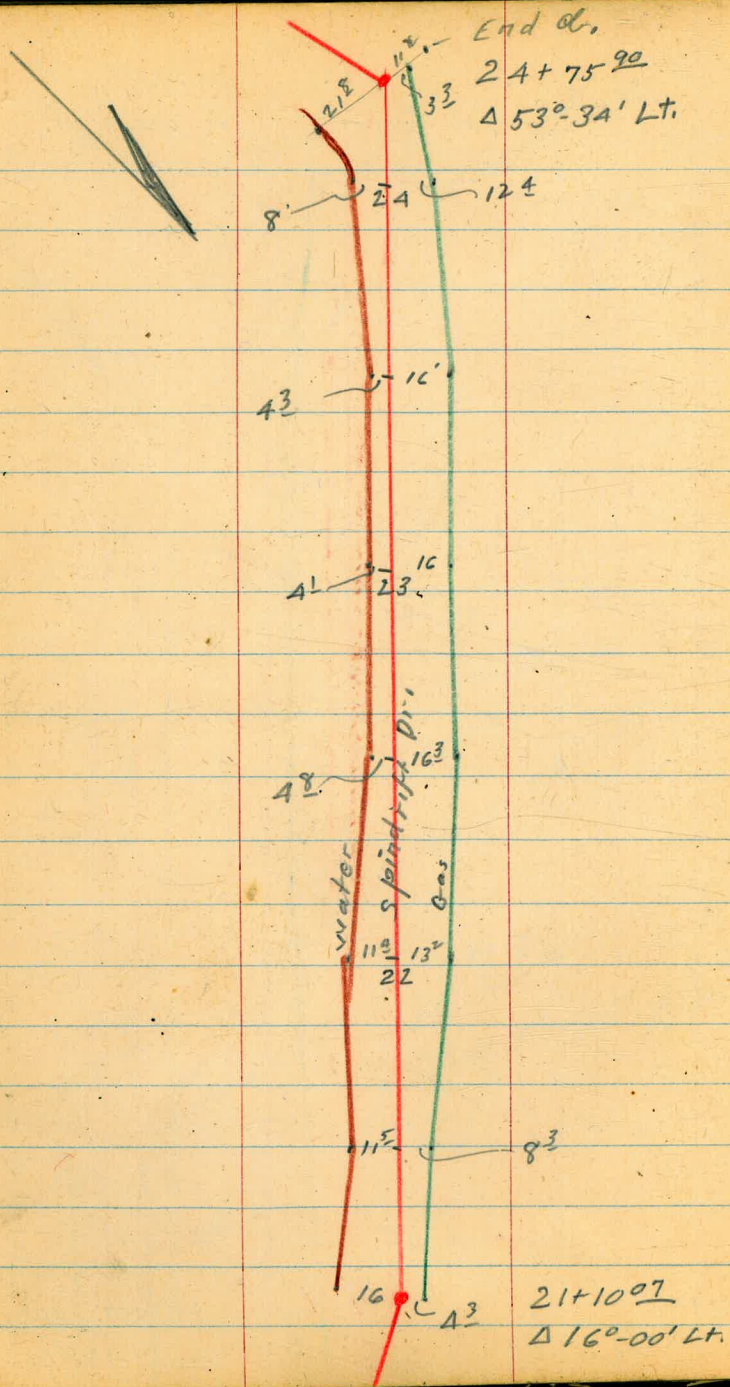 End ol.
24+75 90
Δ 53°-34' Lt.
11 2
3 3
21 8
8'
24
12 4
4 3
16'
4 1
23
16
4 8
16 3
Spindrift Dr.
Water
Gas
11 8
13 2
22
11 5
8 3
16
4 3
21+10 07
Δ 16°-00' Lt.